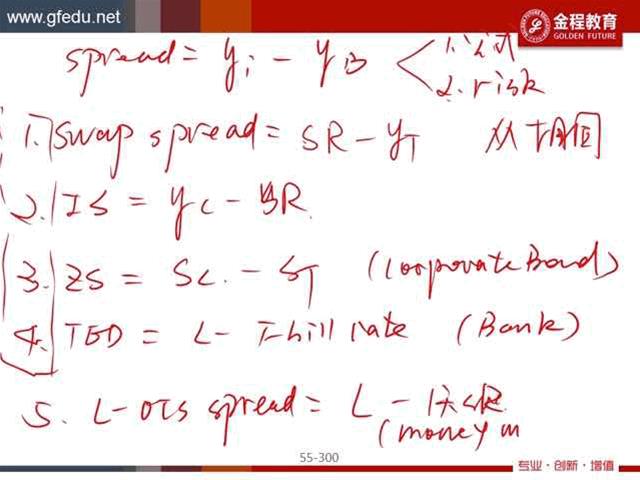 www.gfedu.net
金程教育
GOLDEN FUTURE
spread = yi - yB < 1. 公式
2. risk
1. Swap spread = SR - yT
2. IS = yc - SR
3. ZS = Sc - ST (Corporate Bond)
4. TED = L - T-bill rate (Bank)
5. L-OIS spread = L -
(money m
55-300
专业·创新·增值